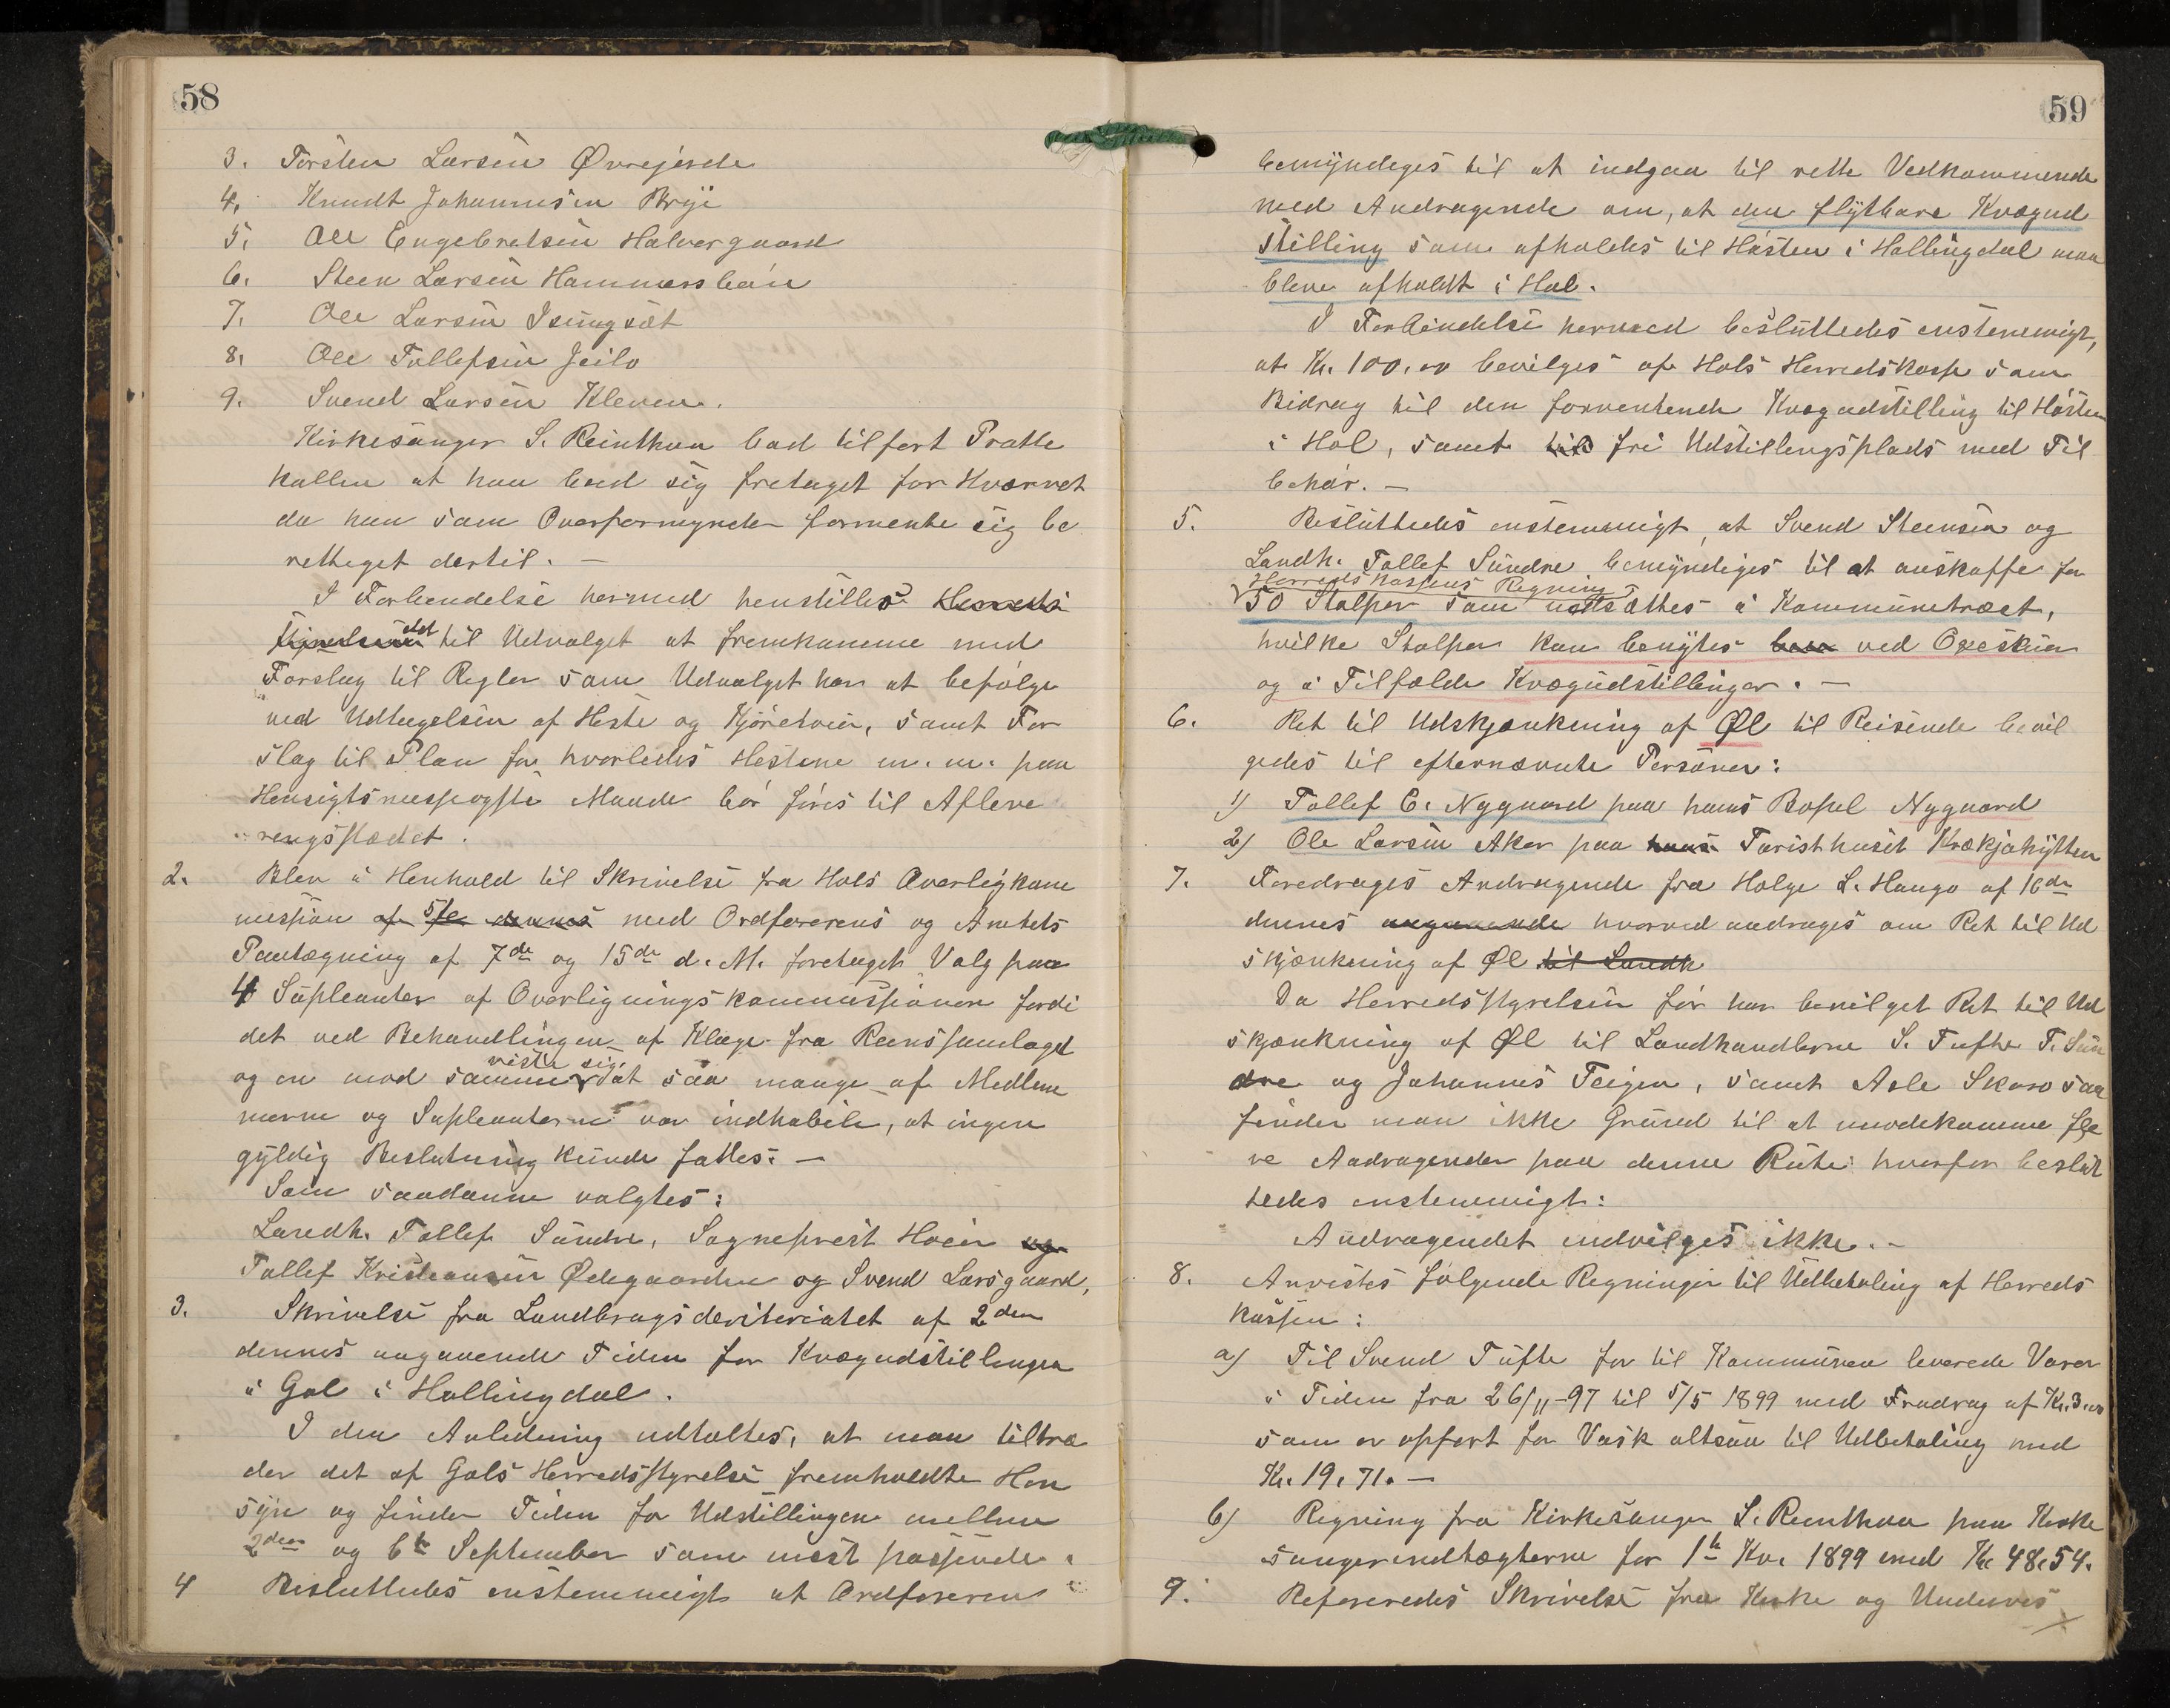 58
3. Torsten Larsen Øvrejorde
4. Knudt Johannesen Brye
5. Ole Engebretsen Halvorgaard
6. Steen Larsen Hammersbøen
7. Ole Larsen Isungsæt
8. Ole Tollefsen Jeilo
9. Svend Larsen Kleven.
Kirkesanger S. Reinthon bad tilført Protho
kollen at han bad sig fretaget for Hvervet
da han som Overformynder formente sig be
rettiget dertil. —
I Forbendelse hermed henstilles Herreds
styrelsen det til Udvalget at fremkomme med
Forslag til Regler som Udvalget har at befølge
ved Udtagelsen af Heste og Kjøretøier, samt For
slag til Plan for hvorledes Hestene m. m. paa
Hensigtsmessigste Maade bør føres til Afleve
ringsstædet.
2. Blev i Henhold til Skrivelse fra Hols Overligkom
mission af 5te dennes med Ordførerens og Amtets
Paategning af 7de og 15de d. M. foretaget Valg paa
4 Supleanter af Overligningskommissionen fordi
det ved Behandlingen af Klage fra Rensamlaget
viste sig
og en mod samme at saa mange af Medlem
merne og Supleanterne var indhabile, at ingen
gyldig Beslutning kunde fattes: —
Som saadanne valgtes:
Landh. Tollef Sundre, Sogneprest Høeir og
Tollef Kristiansen Ødegaarden og Svend Larsgaard,
3. Skrivelse fra Landbrugsderiteriatet af 2den
dennes angaaende Tiden for Kvægudstillingen
i Gol i Hallingdal.
I den Anledning udtaltes, at man tiltræ
der det af Gols Herredsstyrelse fremholdte Hen
syn og finder Tiden for Udstillingen mellem
2den og 6te September som mest passende.
4 Besluttedes enstemmigt at Ordføreren
59
bemyndeges til at indgaa til rette Vedkommende
med Andragende om, at den flytbare Kvægud
stilling som afholdes til Høsten i Hallingdal maa
bleve afholdt i Hol.
I Forbindelse hermed besluttedes enstemmigt,
at Kr. 100.00 bevilges af Hols Herredskasse som
Bidrag til den forventende Kvægudstilling til Høsten
i Hol, samt til fri Udstillingsplads med Til
behør. —
5. Besluttedes enstemmigt, at Svend Steensen og
Landh. Tollef Sundre bemyndiges til at anskaffe for
Herredskassens Regning
50 Stolper som nedsættes i Kommunetræet,
hvilke Stolper kan benyttes ved Oxeskuer
og i Tilfælde Kvægudstillinger. —
6. Ret til Udskjænkning af Øl til Reisende bevil
gedes til efternævnte Personer:
1) Tollef E. Nygaard paa hans Bopel Nygaard
2) Ole Larsen Aker paa hans Turisthuset Krækjahytten
7. Foredrages Andragende fra Holge L. Haugo af 16de
dennes angaaende hvorved andrages om Ret til Ud
skjænkning af Øl til Landh
Da Herredsstyrelsen før har bevilget Ret til Ud
skjænkning af Øl til Landhandlerne S. Tufte T. Sun
dre og Johannes Teigen, samt Asle Skaro saa
finder man ikke Grund til at imødekomme fle
re Andragender paa denne Rute hvorfor beslut
tedes enstemmigt:
Andragendet indvilges ikke. —
8. Anvistes følgende Regninger til Udbetaling af Herreds
kassen:
a) Til Svend Tufte for til Kommunen leverede Varer
i Tiden fra 26/11-97 til 5/5 1899 med Fradrag af Kr. 3.00
som er opført for Vask altsaa til Udbetaling med
Kr. 19.71. —
b) Regning fra Kirkesanger S. Reinthon paa Kirke
sangerindtægterne for 1te Kv. 1899 med Kr. 48.54.
9. Refereredes Skrivelse fra Kirke og Undervis